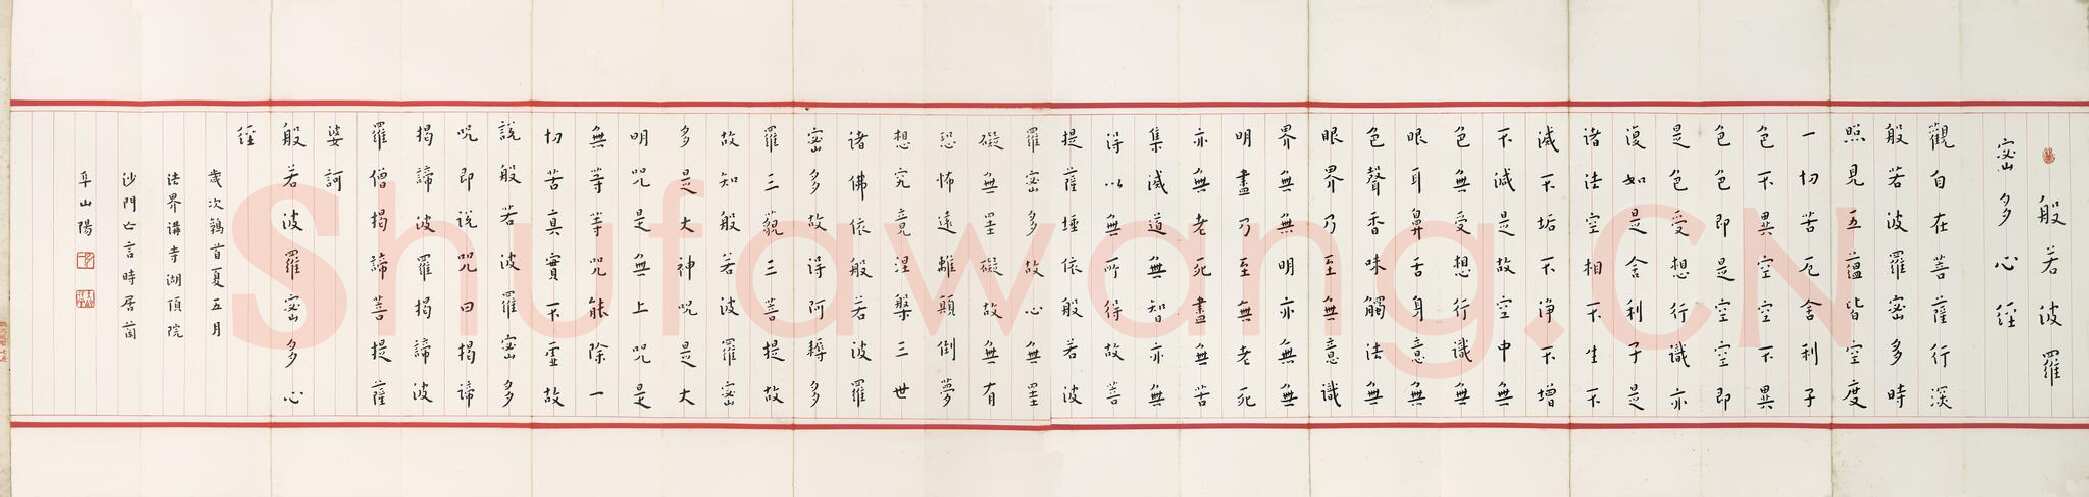 般若波羅
密多心經
觀自在菩薩行深
般若波羅密多時
照見五蘊皆空度
一切苦厄舍利子
色不異空空不異
色色即是空空即
是色受想行識亦
復如是舍利子是
諸法空相不生不
滅不垢不淨不增
不減是故空中無
色無受想行識無
眼耳鼻舌身意無
色聲香味觸法無
眼界乃至無意識
界無無明亦無無
明盡乃至無老死
亦無老死盡無苦
集滅道無智亦無
得以無所得故菩
提薩埵依般若波
羅密多故心無罣
礙無罣礙故無有
恐怖遠離顛倒夢
想究竟涅槃三世
諸佛依般若波羅
密多故得阿耨多
羅三藐三菩提故
故知般若波羅密
多是大神咒是大
明咒是無上咒是
無等等咒能除一
切苦真實不虛故
說般若波羅密多
咒即說咒曰揭諦
揭諦波羅揭諦波
羅僧揭諦菩提薩
婆訶
般若波羅密多心
經
歲次鶉首夏五月
法界講寺湖頂院
沙門亡言時居茵
山陽
Shufawang.CN